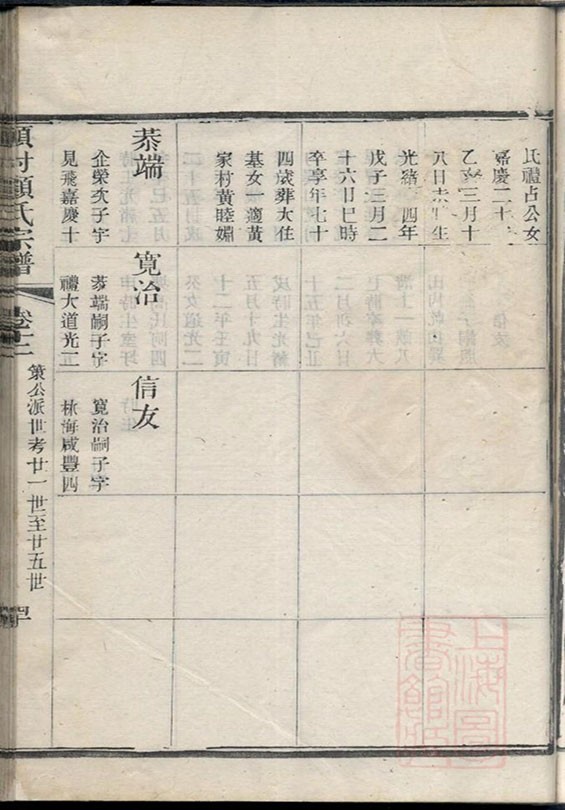 氏禮占公女
嘉慶二十一
乙亥三月十
八日未時生
光緒十四年
戊子三月二
十六日巳時
卒享年七十
四歲葬大住
基女一適黃
家村黃睦嫺
恭端
企榮次子字
見飛嘉慶十
寬治
恭端嗣子字
禮大道光五
信友
寬治嗣子字
林海咸豐四
項村顧氏宗譜
卷十二
策公派世考廿一世至廿五世
上海圖書館藏